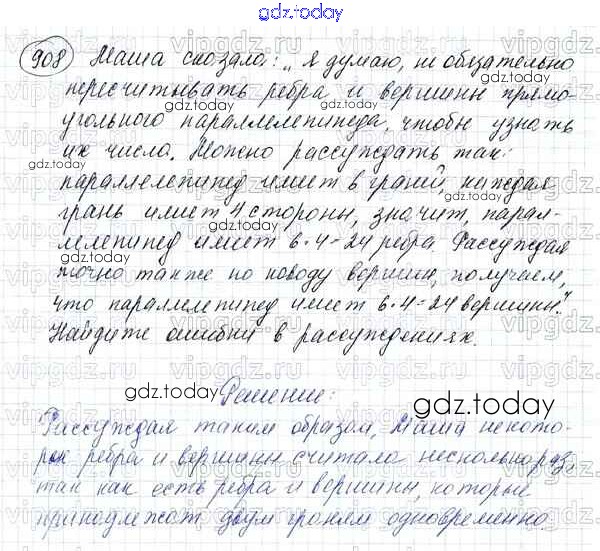 gdz.today
908 Маша сказала: „Я думаю, не обязательно
пересчитывать ребра и вершины прямо-
угольного параллелепипеда, чтобы узнать
их число. Можно рассуждать так:
параллелепипед имеет 6 граней, каждая
грань имеет 4 стороны, значит, парал-
лелепипед имеет 6·4=24 ребра. Рассуждая
точно так же по поводу вершин, получаем,
что параллелепипед имеет 6·4=24 вершины."
Найдите ошибки в рассуждениях.
Решение:
gdz.today
Рассуждая таким образом, Маша некото-
рые ребра и вершины считала несколько раз,
так как есть ребра и вершины, которые
принадлежат двум граням одновременно.
gdz.today